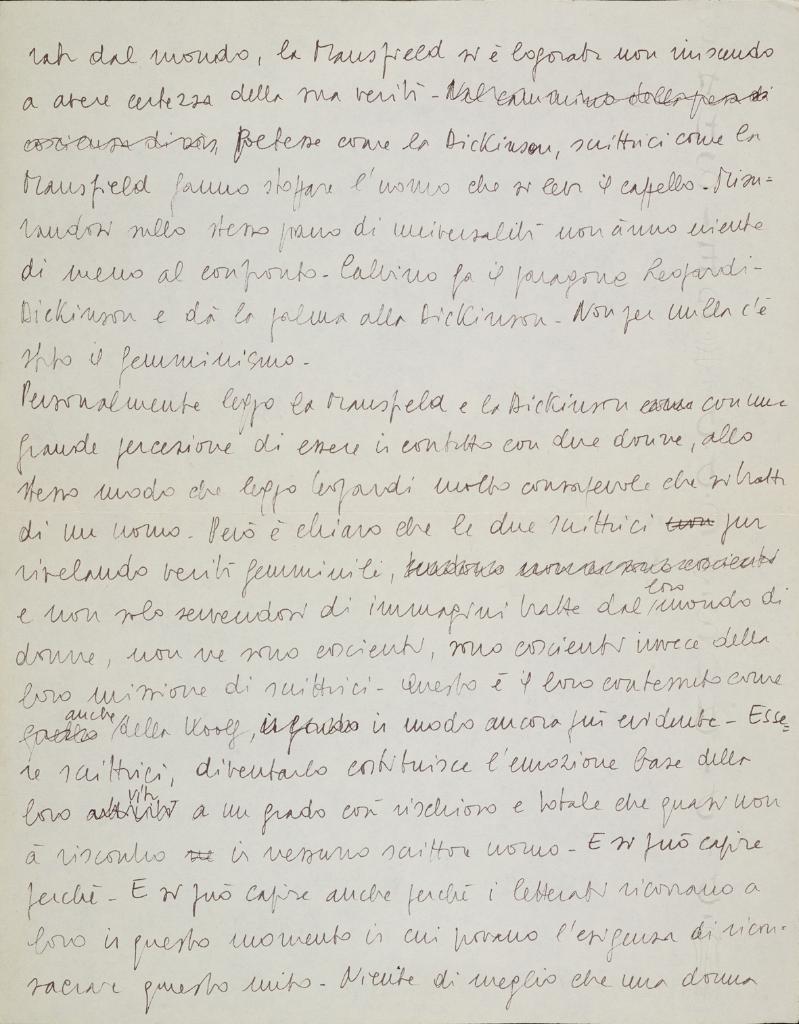 rati dal mondo, la Mansfield si è logorata non riuscendo
a avere certezza della sua verità - Nel cammino della presa di
coscienza di sé, Poetesse come la Dickinson, scrittrici come la
Mansfield fanno stoffare l'uomo che si leva il cappello - Misu-
randosi sullo stesso piano di universalità non ànno niente
di meno al confronto - Calvino fa il paragone Leopardi-
Dickinson e dà la palma alla Dickinson - Non per nulla c'è
stato il femminismo -
Personalmente leggo la Mansfield e la Dickinson come con una
grande percezione di essere in contatto con due donne, allo
stesso modo che leggo Leopardi molto consapevole che si tratta
di un uomo - Però è chiaro che le due scrittrici pur
rivelando verità femminili,
e non solo servendosi di immagini tratte dal loro mondo di
donne, non ne sono coscienti, sono coscienti invece della
loro missione di scrittrici - Questo è il loro contessuto come
anche della Woolf, in modo ancora più evidente - Esse=
re scrittrici, diventarlo costituisce l'emozione base della
loro vita a un grado così rischioso e totale che quasi non
à riscontro in nessuno scrittore uomo - E si può capire
perché - E si può capire anche perché i letterati ricorrano a
loro in questo momento in cui provano l'esigenza di ricon-
sacrare questo mito - Niente di meglio che una donna